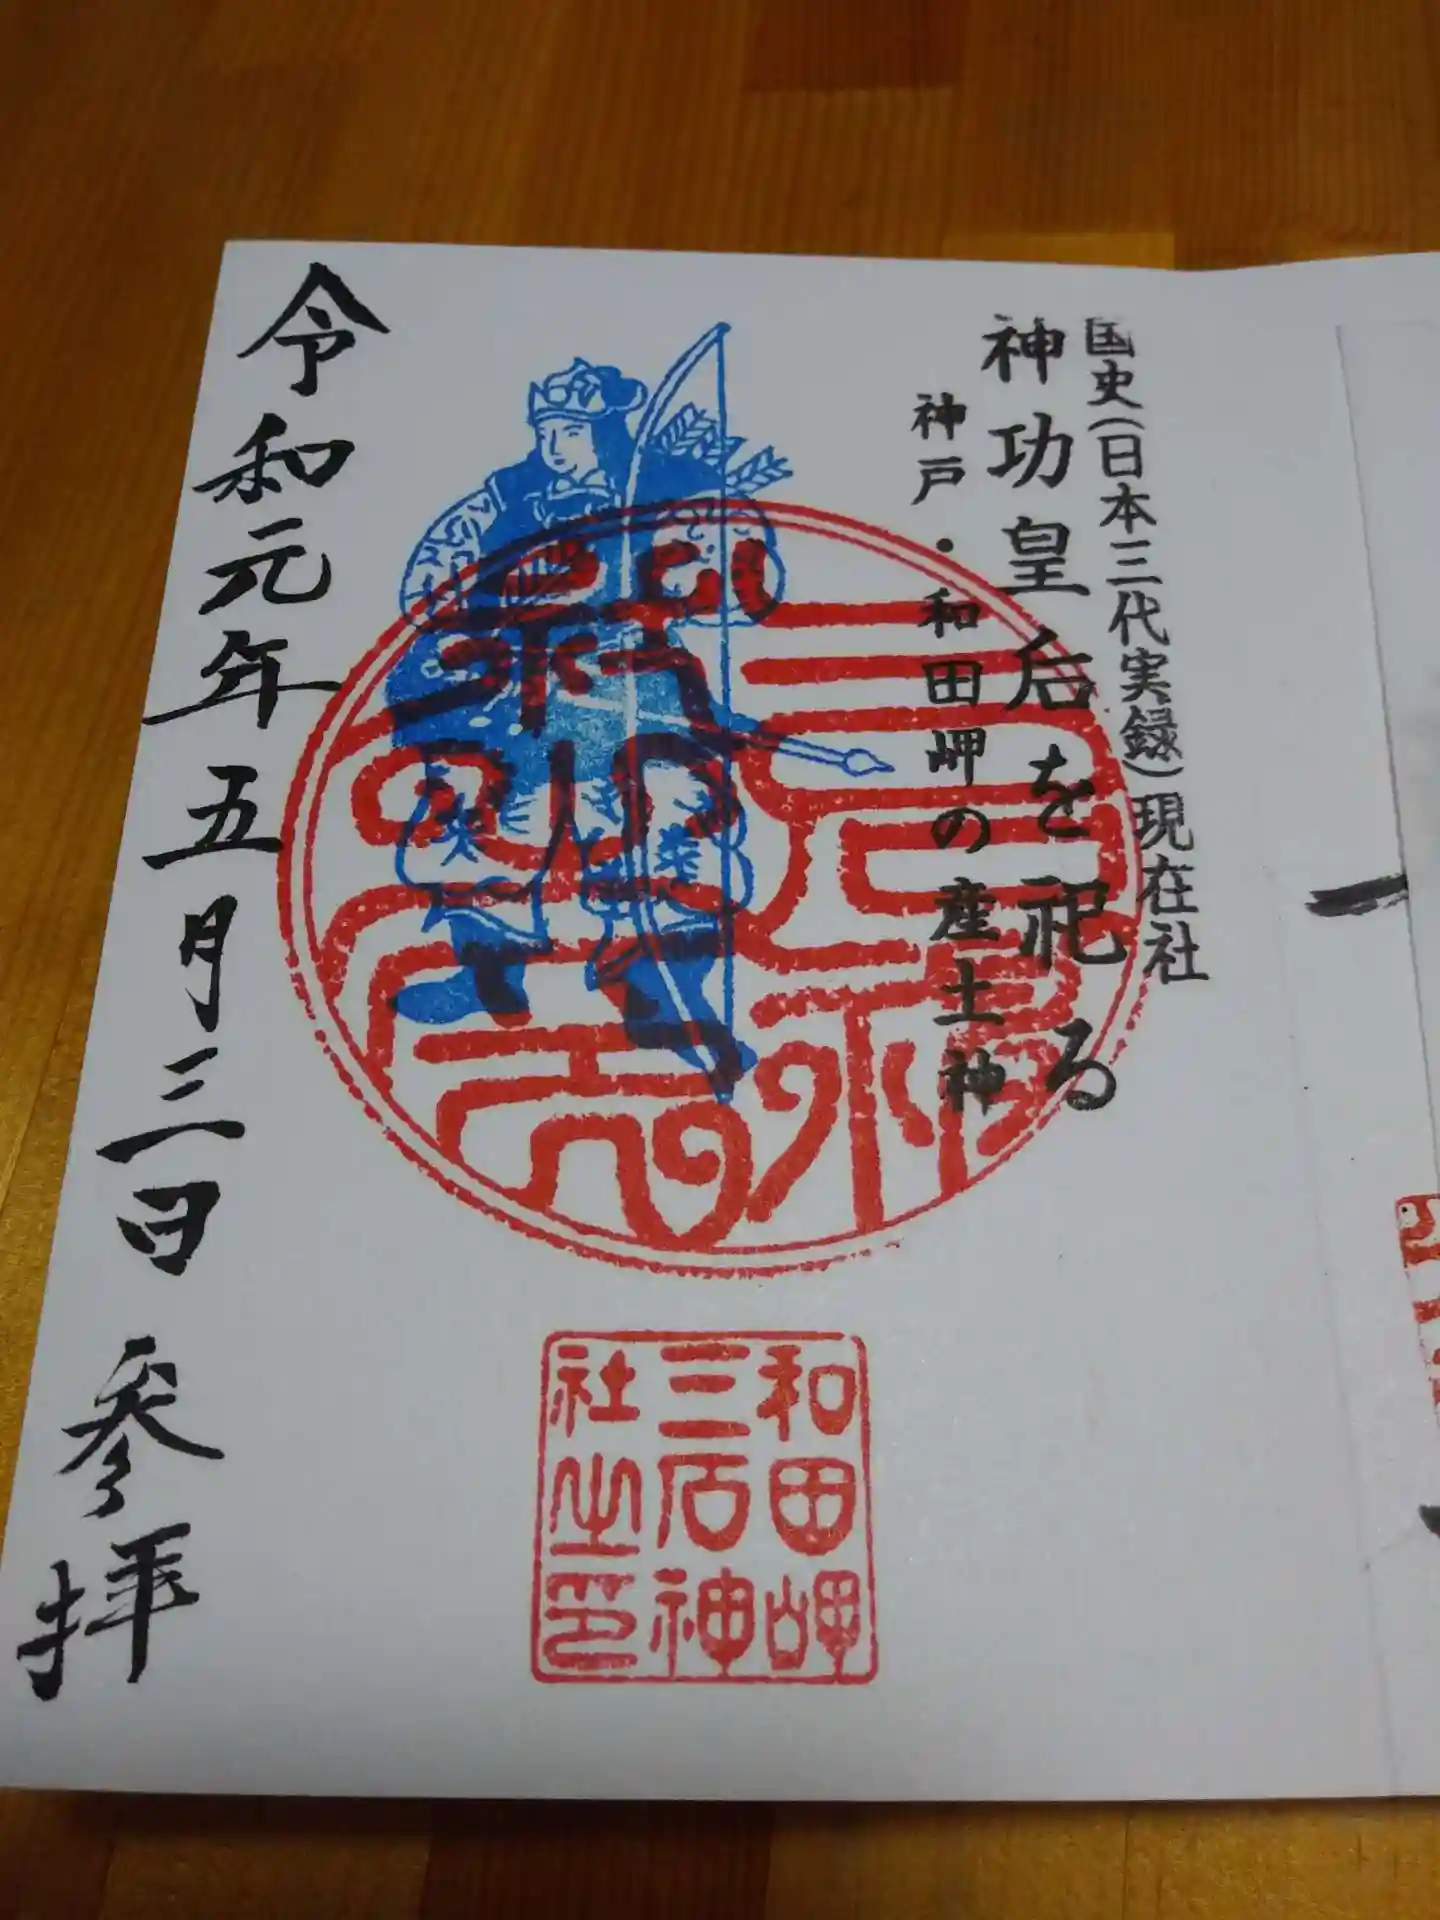 国史(日本三代実録)現在社
神功皇后を祀る
神戸・和田岬の産土神
令和元年五月三日 参拝
和田岬
三石神
社之印